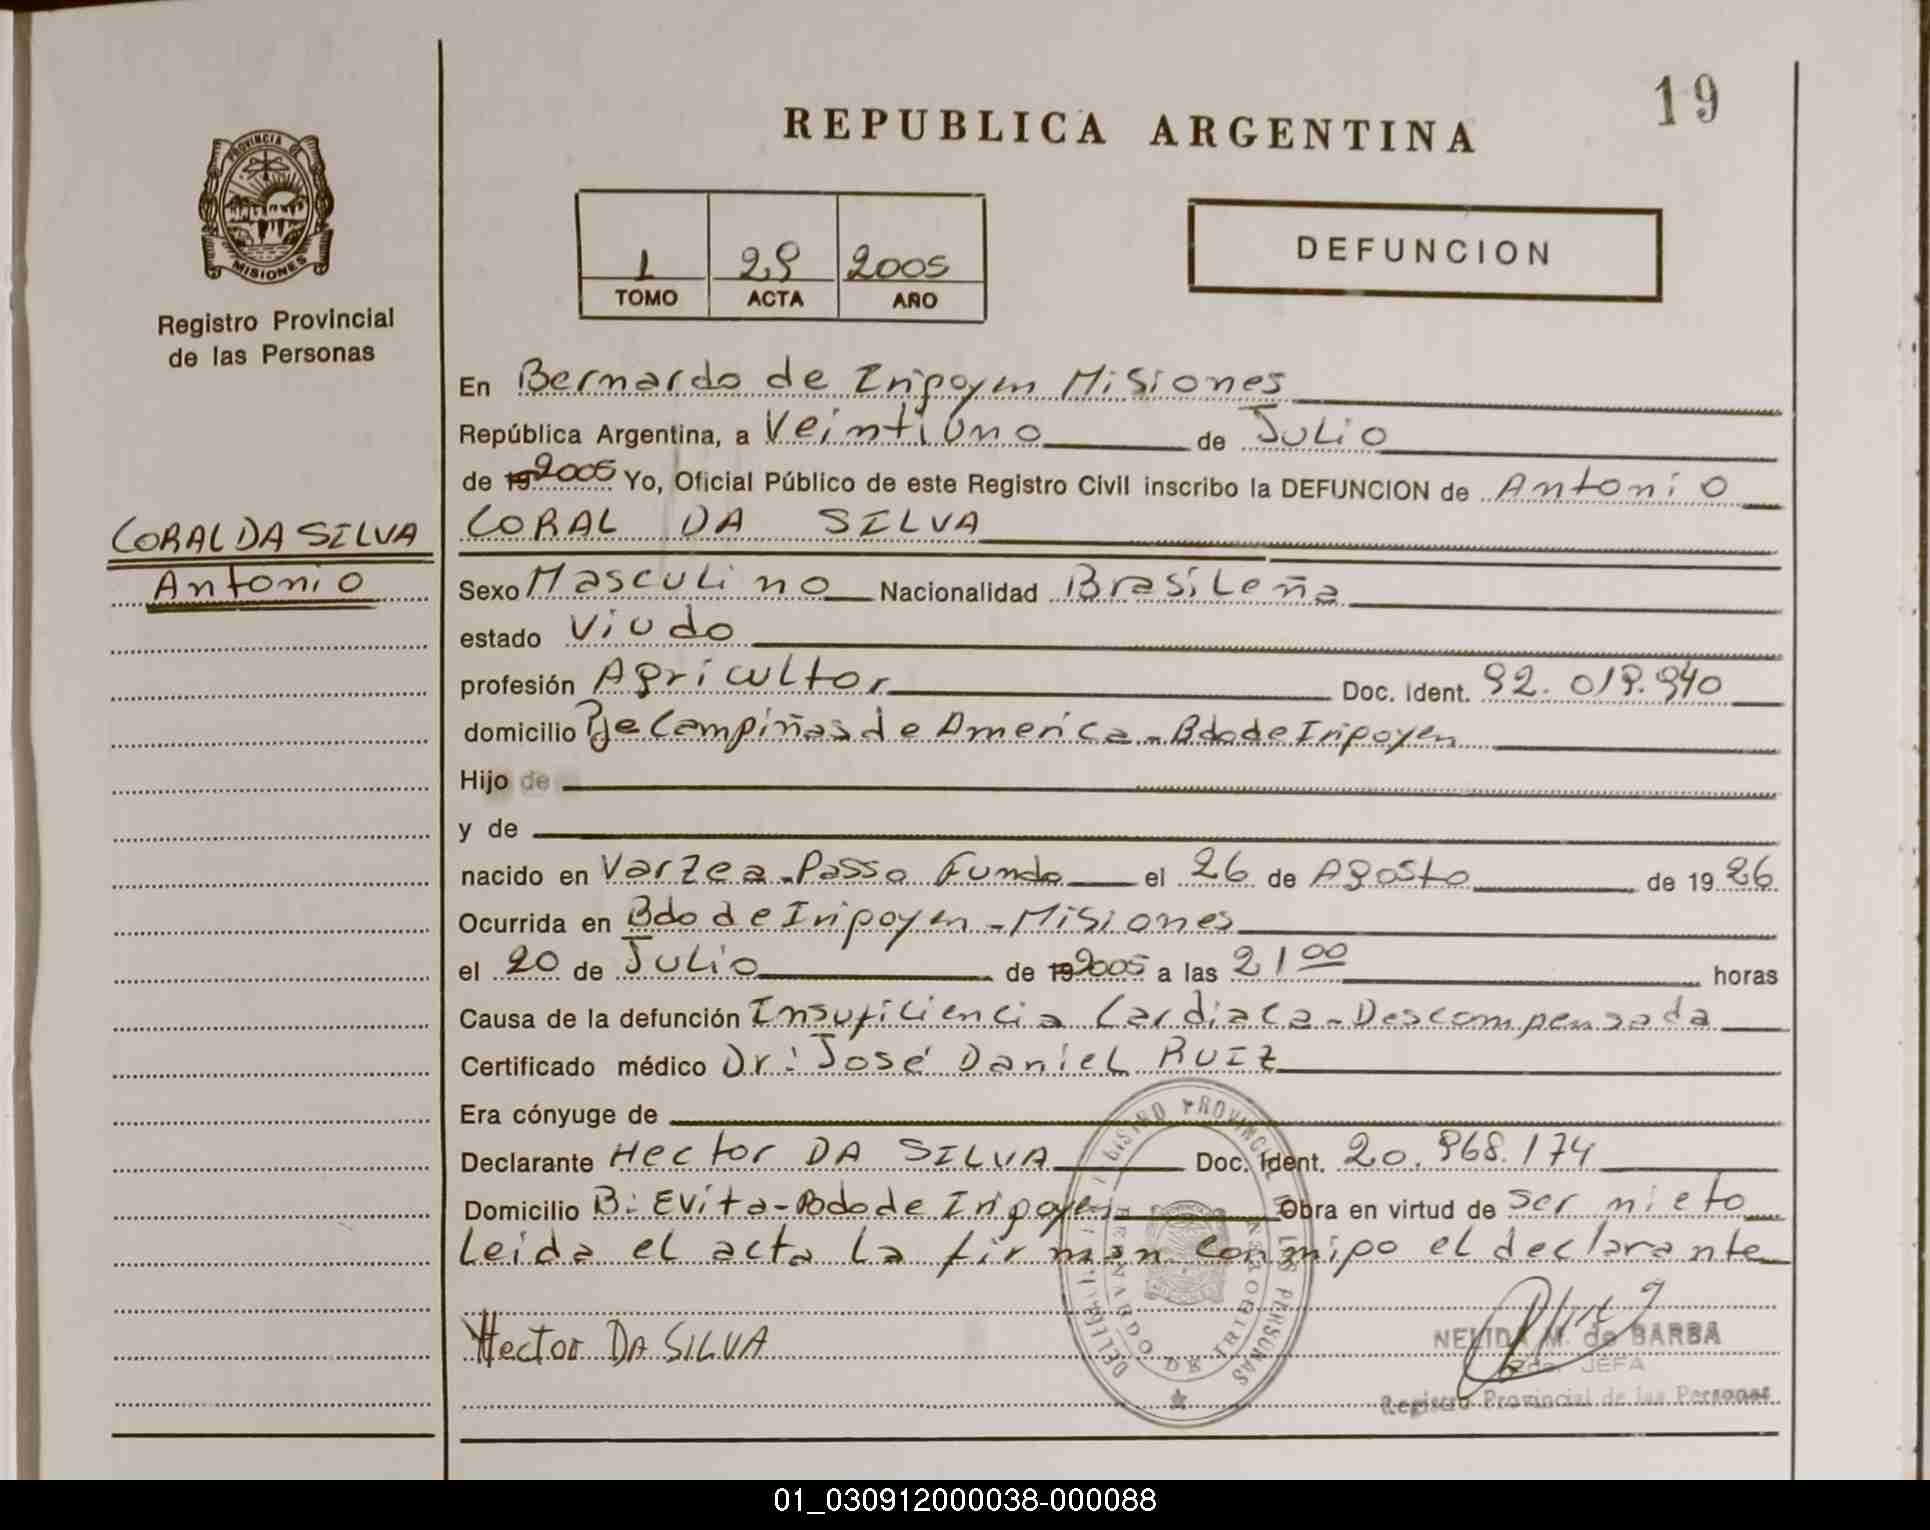 19
REPUBLICA ARGENTINA
PROVINCIA DE
MISIONES
Registro Provincial
de las Personas
1 29 2005
TOMO ACTA AÑO
DEFUNCION
En Bernardo de Irigoyen Misiones
República Argentina, a Veintiuno de Julio
de 19 2005 Yo, Oficial Público de este Registro Civil inscribo la DEFUNCION de Antonio
CORAL DA SILVA
CORAL DA SILVA
Antonio
Sexo Masculino Nacionalidad Brasileña
estado Viudo
profesión Agricultor Doc. Ident. 92.019.940
domicilio Pje Campiñas de America - Bdo de Irigoyen
Hijo de
y de
nacido en Varzea - Passo Fundo el 26 de Agosto de 19 26
Ocurrida en Bdo de Irigoyen - Misiones
el 20 de Julio de 19 2005 a las 21 00 horas
Causa de la defunción Insuficiencia Cardiaca - Descompensada
Certificado médico Dr: José Daniel RUIZ
Era cónyuge de
Declarante Hector DA SILVA Doc. Ident. 20.968.174
Domicilio B: Evita - Bdo de Irigoyen Obra en virtud de ser nieto
Leida el acta la firman conmigo el declarante
Hector DA SILVA
NELIDA M. de BARBA
2da. JEFA
Registro Provincial de las Personas
REGISTRO PROVINCIAL DE LAS PERSONAS
BERNARDO DE IRIGOYEN
01_030912000038-000088